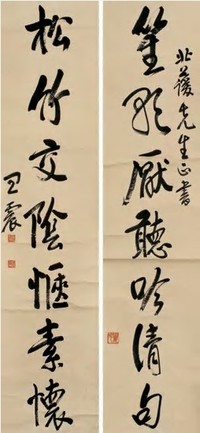 北萲先生正書
笙歌厭聽吟清句
松竹交陰愜素懷
王震